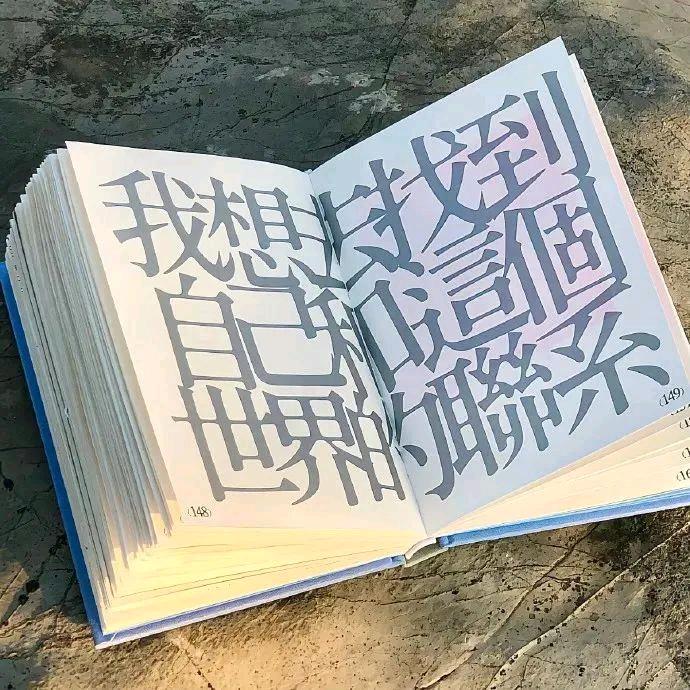 我想去找到
自己和這個
世界的聯系
(148)
(149)